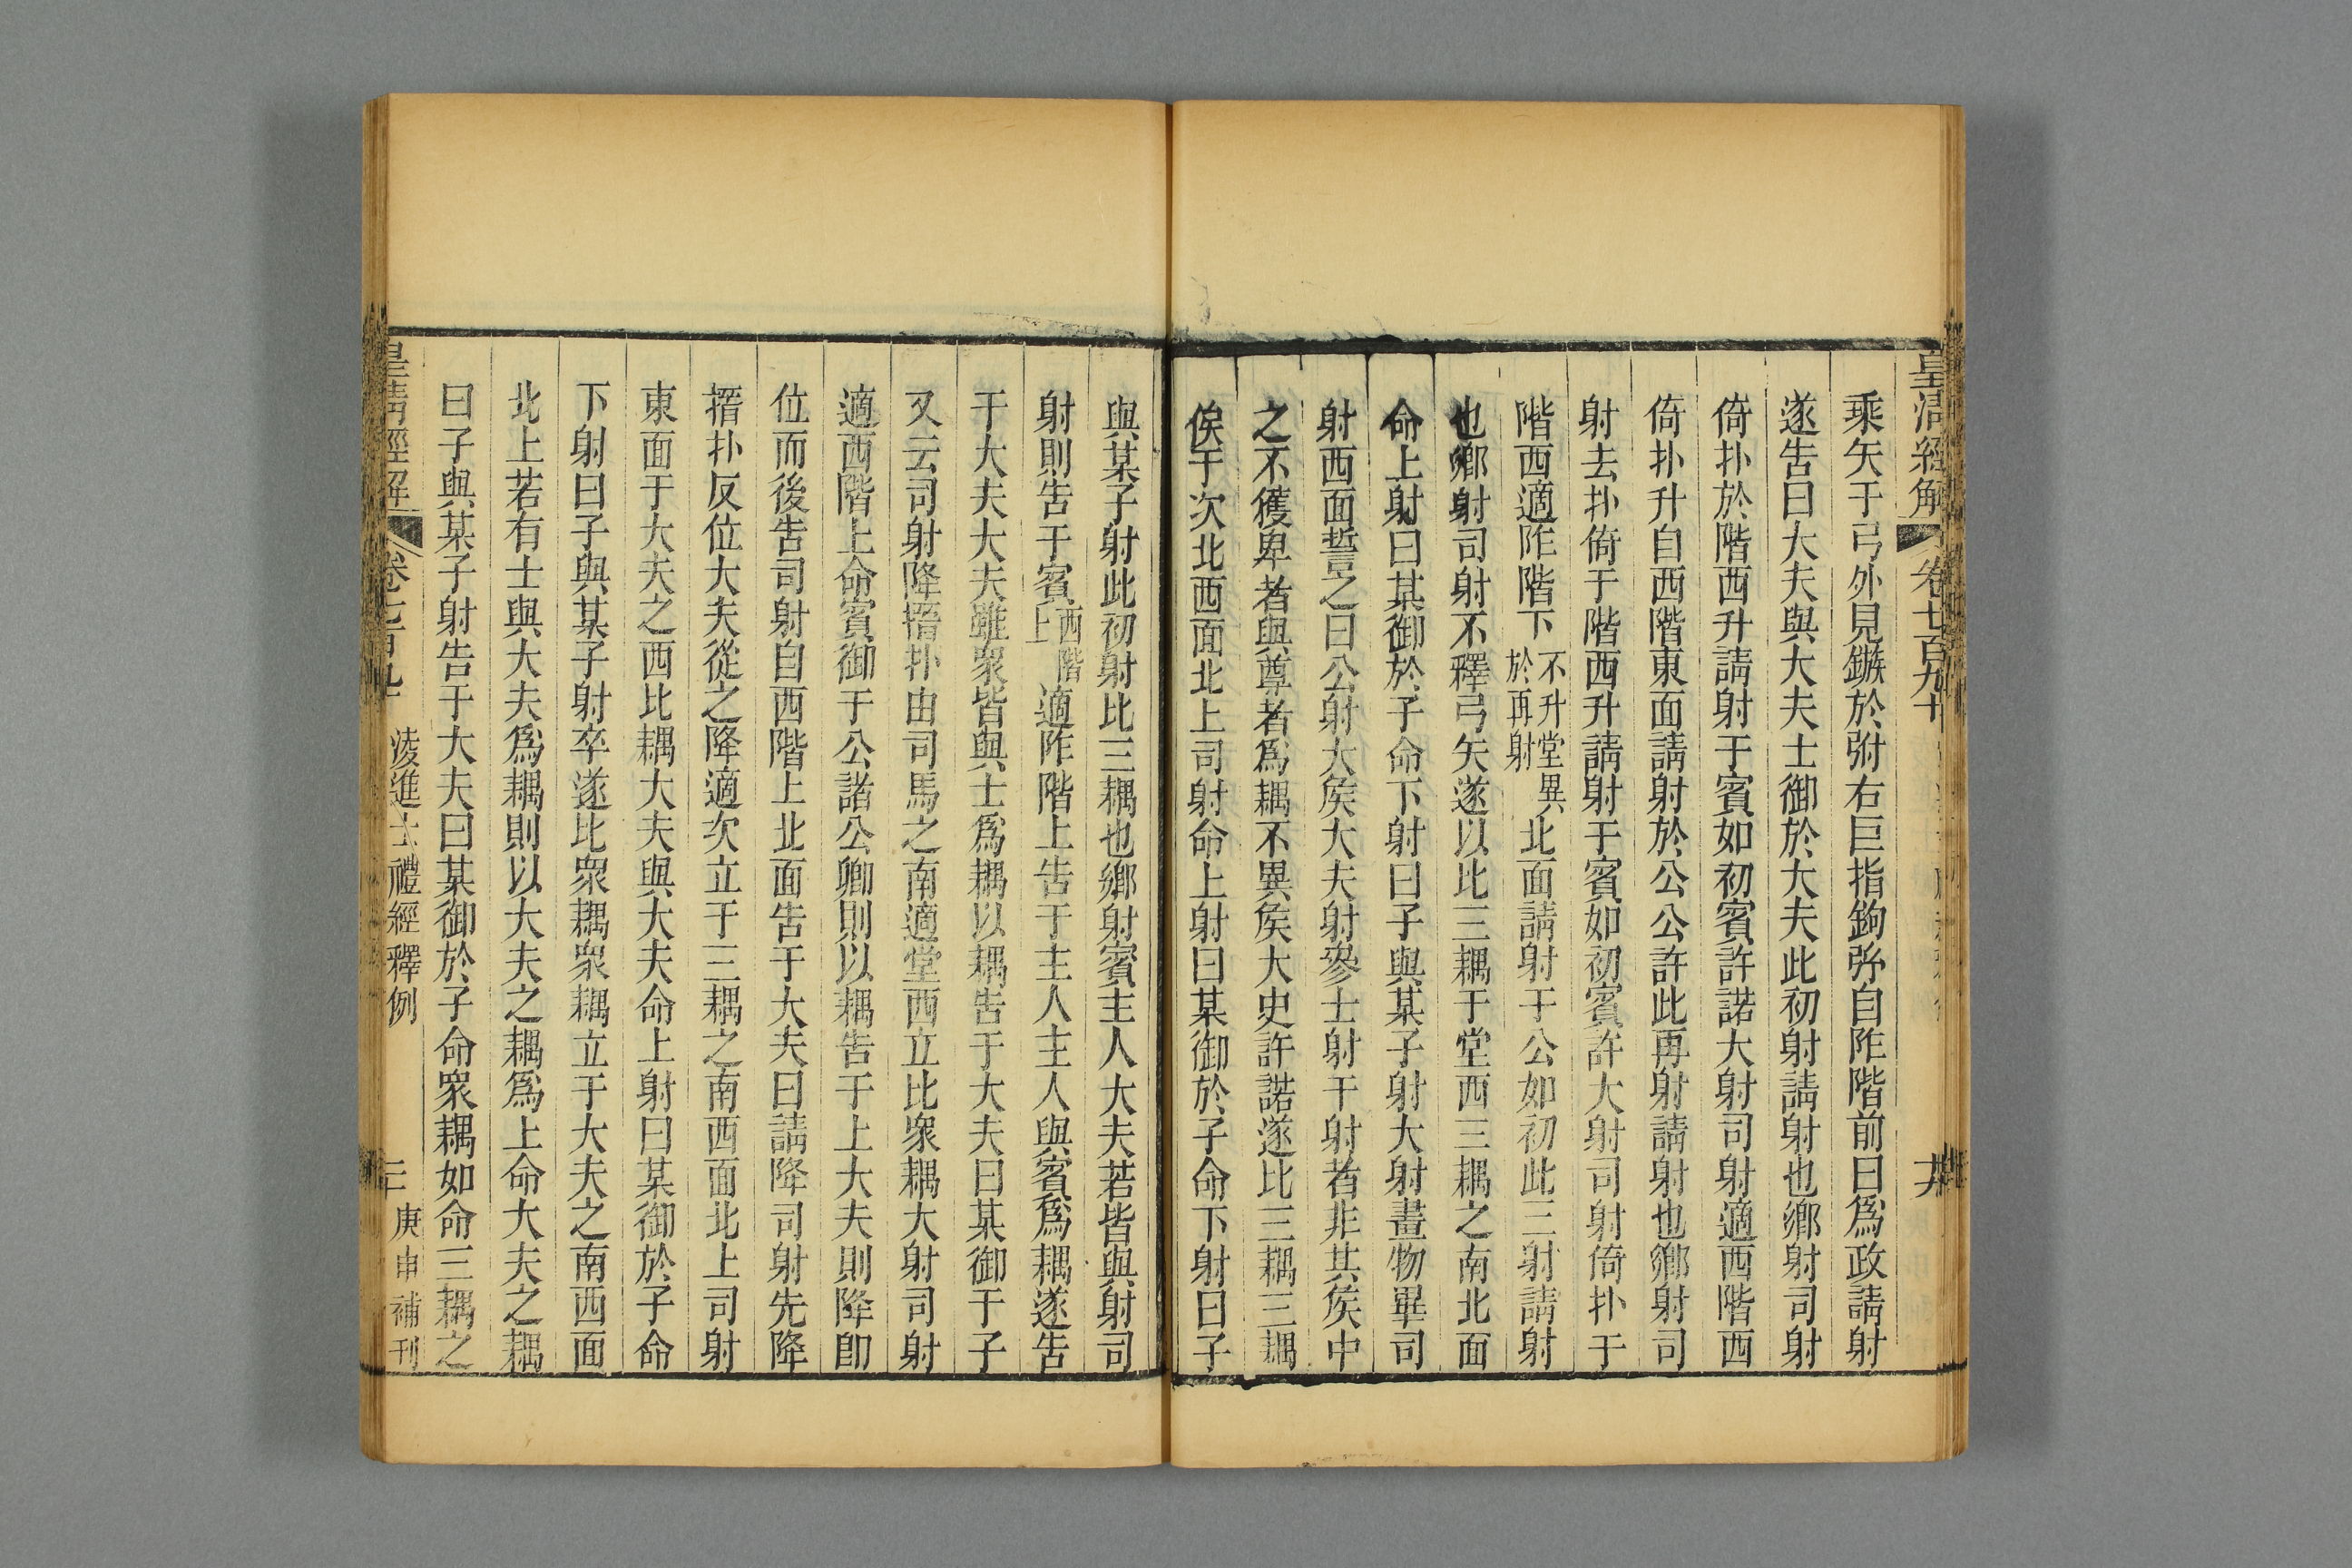 皇清經解 卷七百九十
乘矢于弓外見鏃於弣右巨指鉤弦自阼階前曰爲政請射
遂告曰大夫與大夫士御於大夫此初射請射也鄉射司射
倚扑於階西升請射于賓如初賓許諾大射司射適西階西
倚扑升自西階東面請射於公公許此再射請射也鄉射司
射去扑倚于階西升請射于賓如初賓許大射司射倚扑于
階西適阼階下不升堂異於再射北面請射于公如初此三射請射
也鄉射司射不釋弓矢遂以比三耦于堂西三耦之南北面
命上射曰某御於子命下射曰子與某子射大射畫物畢司
射西面誓之曰公射大矦大夫射參士射干射者非其矦中
之不獲卑者與尊者爲耦不異矦大史許諾遂比三耦三耦
俟于次北西面北上司射命上射曰某御於子命下射曰子
與某子射此初射比三耦也鄉射賓主人大夫若皆與射司
射則告于賓西階上適阼階上告于主人主人與賓爲耦遂告
于大夫大夫雖眾皆與士爲耦以耦告于大夫曰某御于子
又云司射降搢扑由司馬之南適堂西立比眾耦大射司射
適西階上命賓御于公諸公卿則以耦告于上大夫則降卽
位而後告司射自西階上北面告于大夫曰請降司射先降
搢扑反位大夫從之降適次立于三耦之南西面北上司射
東面于大夫之西比耦大夫與大夫命上射曰某御於子命
下射曰子與某子射卒遂比眾耦眾耦立于大夫之南西面
北上若有士與大夫爲耦則以大夫之耦爲上命大夫之耦
曰子與某子射告于大夫曰某御於子命眾耦如命三耦之
皇清經解 卷七百九十 淩進士禮經釋例 庚申補刊